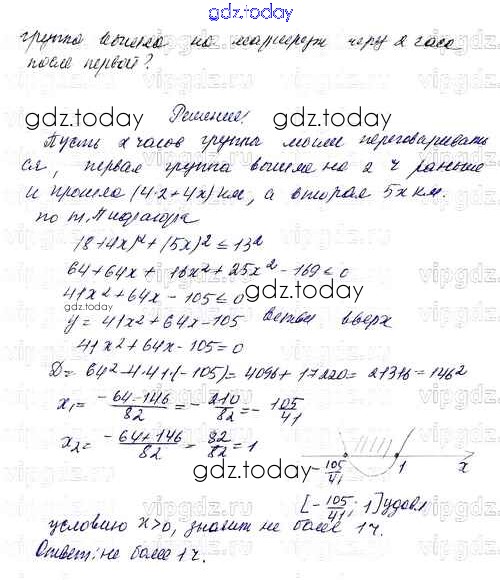 gdz.today
группа вышла на маршрут через 2 часа
после первой?
Решение:
gdz.today
gdz.today
Пусть x часов группы могли переговаривать
ся, первая группа вышла на 2 ч раньше
и прошла (4·2+4x) км, а вторая 5x км.
по т. Пифагора
(8+4x)²+(5x)² ≤ 13²
64+64x+16x²+25x²-169≤0
41x²+64x-105≤0
gdz.today
gdz.today
y=41x²+64x-105 ветви вверх
41x²+64x-105=0
D=64²-4·41·(-105)=4096+17220=21316=146²
x₁=(-64-146)/82=-210/82=-105/41
x₂=(-64+146)/82=82/82=1
gdz.today
gdz.today
-105/41 1 x
[-105/41; 1] удовл
условию x>0, значит не более 1ч.
Ответ: не более 1ч.
gdz.today
gdz.today